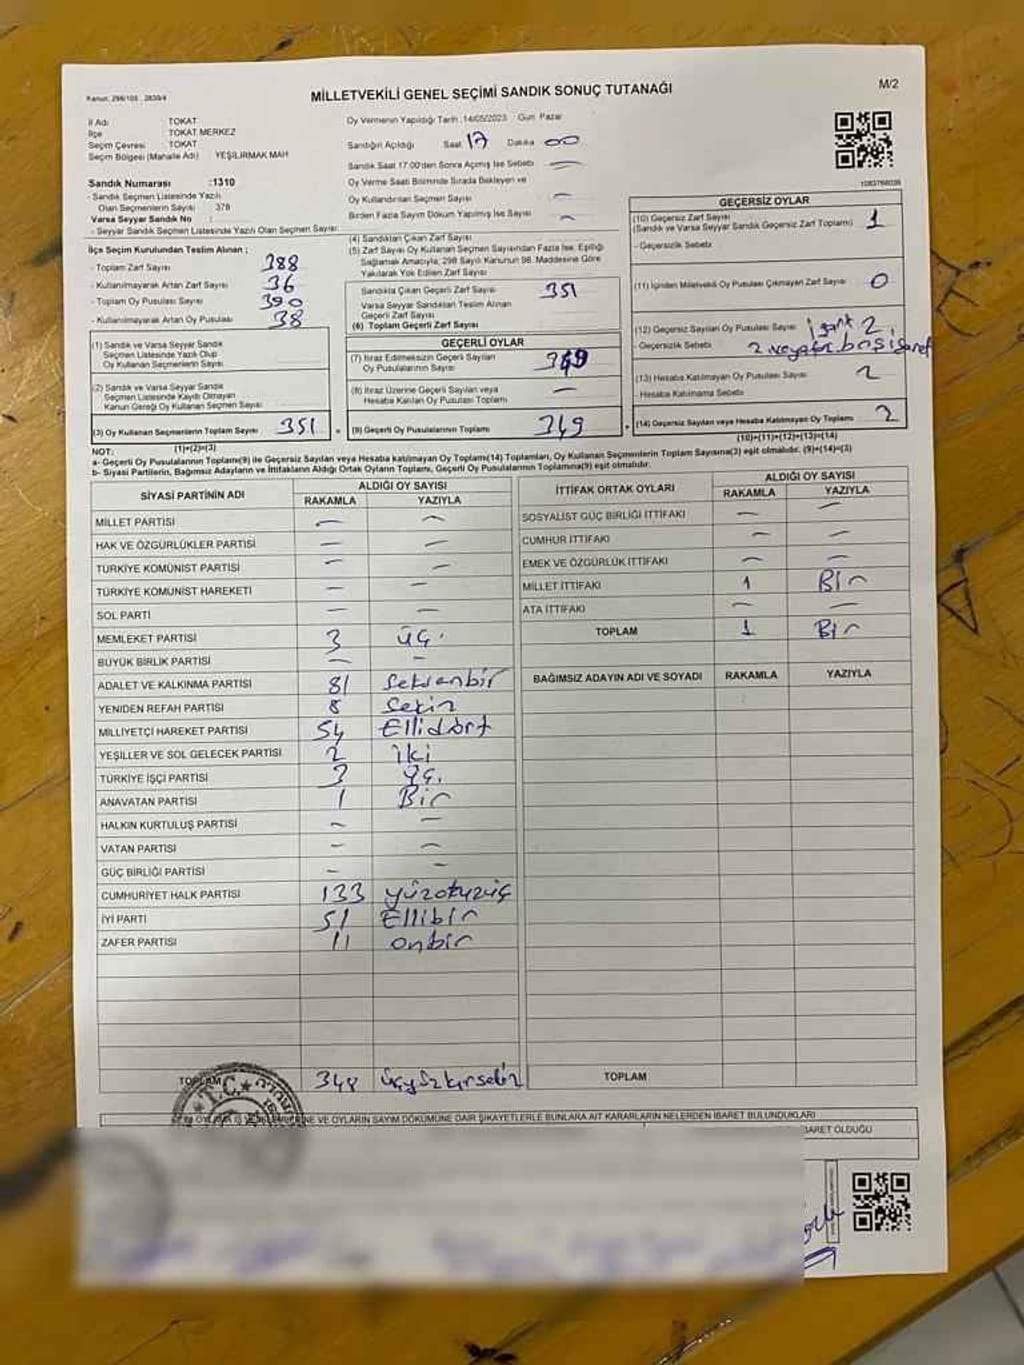 Kanun: 298/105 , 2839/4
MİLLETVEKİLİ GENEL SEÇİMİ SANDIK SONUÇ TUTANAĞI
M/2
İl Adı TOKAT
İlçe TOKAT MERKEZ
Seçim Çevresi TOKAT
Seçim Bölgesi (Mahalle Adı) YEŞİLIRMAK MAH
Sandık Numarası :1310
- Sandık Seçmen Listesinde Yazılı
Olan Seçmenlerin Sayısı 378
Varsa Seyyar Sandık No :
- Seyyar Sandık Seçmen Listesinde Yazılı Olan Seçmen Sayısı:
Oy Vermenin Yapıldığı Tarih :14/05/2023 Gün: Pazar
Sandığın Açıldığı Saat 17 Dakika 00
Sandık Saat 17.00'den Sonra Açılmış İse Sebebi —
Oy Verme Saati Bitiminde Sırada Bekleyen ve
Oy Kullandırılan Seçmen Sayısı —
Birden Fazla Sayım Döküm Yapılmış İse Sayısı —
İlçe Seçim Kurulundan Teslim Alınan ;
- Toplam Zarf Sayısı 388
- Kullanılmayarak Artan Zarf Sayısı 36
- Toplam Oy Pusulası Sayısı 390
- Kullanılmayarak Artan Oy Pusulası 38
(1) Sandık ve Varsa Seyyar Sandık
Seçmen Listesinde Yazılı Olup
Oy Kullanan Seçmenlerin Sayısı
(2) Sandık ve Varsa Seyyar Sandık
Seçmen Listesinde Kayıtlı Olmayan
Kanun Gereği Oy Kullanan Seçmen Sayısı
(3) Oy Kullanan Seçmenlerin Toplam Sayısı 351 =
(1)+(2)=(3)
(4) Sandıktan Çıkan Zarf Sayısı
(5) Zarf Sayısı Oy Kullanan Seçmen Sayısından Fazla İse, Eşitliği
Sağlamak Amacıyla; 298 Sayılı Kanunun 98. Maddesine Göre
Yakılarak Yok Edilen Zarf Sayısı
Sandıkta Çıkan Geçerli Zarf Sayısı 351
Varsa Seyyar Sandıktan Teslim Alınan
Geçerli Zarf Sayısı
(6) Toplam Geçerli Zarf Sayısı
GEÇERLİ OYLAR
(7) İtiraz Edilmeksizin Geçerli Sayılan
Oy Pusulalarının Sayısı 349
(8) İtiraz Üzerine Geçerli Sayılan veya
Hesaba Katılan Oy Pusulası Toplamı —
(9) Geçerli Oy Pusulalarının Toplamı 349 +
GEÇERSİZ OYLAR
(10) Geçersiz Zarf Sayısı
(Sandık ve Varsa Seyyar Sandık Geçersiz Zarf Toplamı) 1
- Geçersizlik Sebebi
(11) İçinden Milletvekili Oy Pusulası Çıkmayan Zarf Sayısı 0
(12) Geçersiz Sayılan Oy Pusulası Sayısı 2
- Geçersizlik Sebebi: 2
(13) Hesaba Katılmayan Oy Pusulası Sayısı 2
- Hesaba Katılmama Sebebi
(14) Geçersiz Sayılan veya Hesaba Katılmayan Oy Toplamı 2
(10)+(11)+(12)+(13)=(14)
NOT:
a- Geçerli Oy Pusulalarının Toplamı(9) ile Geçersiz Sayılan veya Hesaba katılmayan Oy Toplamı(14) Toplamları, Oy Kullanan Seçmenlerin Toplam Sayısına(3) eşit olmalıdır. (9)+(14)=(3)
b- Siyasi Partilerin, Bağımsız Adayların ve İttifakların Aldığı Ortak Oyların Toplamı, Geçerli Oy Pusulalarının Toplamına(9) eşit olmalıdır.
SİYASİ PARTİNİN ADI ALDIĞI OY SAYISI
RAKAMLA YAZIYLA
MİLLET PARTİSİ — —
HAK VE ÖZGÜRLÜKLER PARTİSİ — —
TÜRKİYE KOMÜNİST PARTİSİ — —
TÜRKİYE KOMÜNİST HAREKETİ — —
SOL PARTİ — —
MEMLEKET PARTİSİ 3 üç.
BÜYÜK BİRLİK PARTİSİ — —
ADALET VE KALKINMA PARTİSİ 81 Seksenbir
YENİDEN REFAH PARTİSİ 8 Sekiz
MİLLİYETÇİ HAREKET PARTİSİ 54 Ellidört
YEŞİLLER VE SOL GELECEK PARTİSİ 2 iki
TÜRKİYE İŞÇİ PARTİSİ 3 üç.
ANAVATAN PARTİSİ 1 Bir
HALKIN KURTULUŞ PARTİSİ — —
VATAN PARTİSİ — —
GÜÇ BİRLİĞİ PARTİSİ — —
CUMHURİYET HALK PARTİSİ 133 yüzotuzüç
İYİ PARTİ 51 Ellibir
ZAFER PARTİSİ 11 onbir
TOPLAM 348 üçyüzkırsekiz
İTTİFAK ORTAK OYLARI ALDIĞI OY SAYISI
RAKAMLA YAZIYLA
SOSYALİST GÜÇ BİRLİĞİ İTTİFAKI — —
CUMHUR İTTİFAKI — —
EMEK VE ÖZGÜRLÜK İTTİFAKI — —
MİLLET İTTİFAKI 1 Bir
ATA İTTİFAKI — —
TOPLAM 1 Bir
BAĞIMSIZ ADAYIN ADI VE SOYADI RAKAMLA YAZIYLA
TOPLAM
T.C.
VE OYLARIN SAYIM DÖKÜMÜNE DAİR ŞİKAYETLERLE BUNLARA AİT KARARLARIN NELERDEN İBARET BULUNDUKLARI
İBARET OLDUĞU